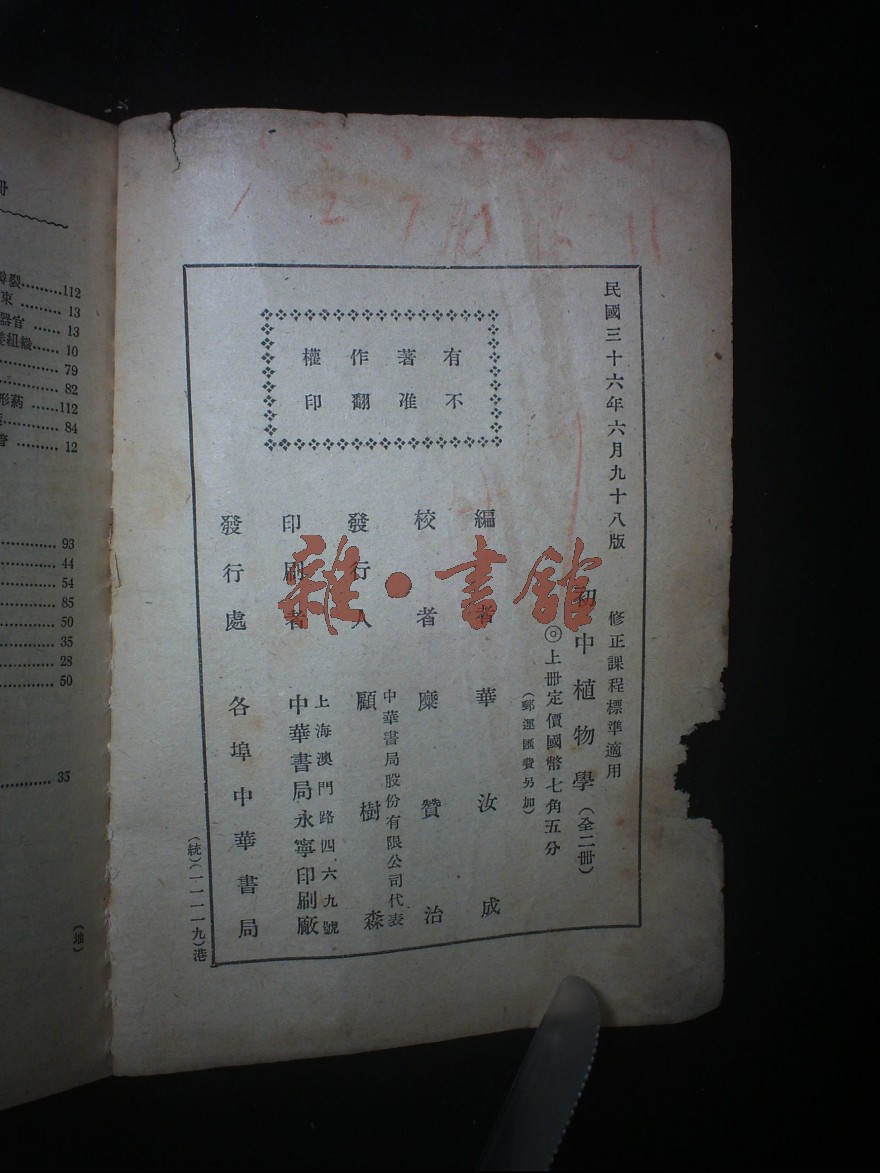 民國三十六年六月九十八版
修正課程標準適用
初中植物學(全二冊)
◎上册定價國幣七角五分
(郵運匯費另加)
有著作權
不准翻印
編者 華汝成
校者 糜贊治
中華書局股份有限公司代表
發行人 顧樹森
上海澳門路四六九號
印刷者 中華書局永寧印刷廠
發行處 各埠中華書局
(統)(一一一一九)港
雜·書館
1 2 7 10 16 11
冊
裂………112
束………13
器官……13
組織……10
………79
………82
形葯……112
………84
管………12
………93
………44
………54
………85
………50
………35
………28
………50
………33
(地)